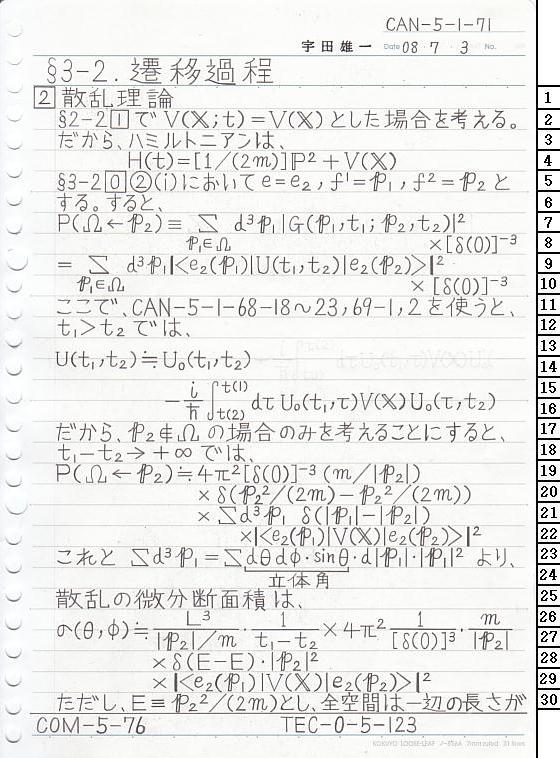 CAN-5-1-71
宇田雄一 Date 08・7・3 No.
§3-2. 遷移過程
2 散乱理論
§2-2 1 で V(𝕏;t)=V(𝕏) とした場合を考える。
だから、ハミルトニアンは、
H(t)=[1/(2m)]ℙ²+V(𝕏)
§3-2 0 ②(i)において e=e₂, f¹=𝕡₁, f²=𝕡₂ と
する。すると、
P(Ω←𝕡₂)≡ Σ d³𝕡₁|G(𝕡₁,t₁;𝕡₂,t₂)|²
𝕡₁∈Ω ×[δ(0)]⁻³
= Σ d³𝕡₁|<e₂(𝕡₁)|U(t₁,t₂)|e₂(𝕡₂)>|²
𝕡₁∈Ω ×[δ(0)]⁻³
ここで、CAN-5-1-68-18~23, 69-1, 2 を使うと、
t₁>t₂ では、
U(t₁,t₂)≒U₀(t₁,t₂)
-i/ħ ∫t(2)t(1) dτ U₀(t₁,τ)V(𝕏)U₀(τ,t₂)
だから、𝕡₂∉Ω の場合のみを考えることにすると、
t₁-t₂→+∞ では、
P(Ω←𝕡₂)≒4π²[δ(0)]⁻³(m/|𝕡₂|)
×δ(𝕡₂²/(2m)-𝕡₂²/(2m))
×Σd³𝕡₁ δ(|𝕡₁|-|𝕡₂|)
×|<e₂(𝕡₁)|V(𝕏)|e₂(𝕡₂)>|²
これと Σd³𝕡₁=Σdθdφ・sinθ・d|𝕡₁|・|𝕡₁|² より、
立体角
散乱の微分断面積は、
σ(θ,φ)≒ L³/(|𝕡₂|/m) ・ 1/(t₁-t₂) ×4π² 1/[δ(0)]³ ・ m/|𝕡₂|
×δ(E-E)・|𝕡₂|²
×|<e₂(𝕡₁)|V(𝕏)|e₂(𝕡₂)>|²
ただし、E≡𝕡₂²/(2m)とし、全空間は一辺の長さが
COM-5-76 TEC-0-5-123
KOKUYO LOOSE-LEAF ノ-836A 7mm ruled 31 lines
1
2
3
4
5
6
7
8
9
10
11
12
13
14
15
16
17
18
19
20
21
22
23
24
25
26
27
28
29
30